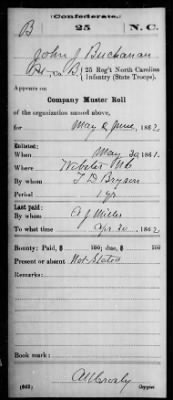 Confederate.
B 25 N.C.
John J. Buchanan
Co. B, 25 Reg't North Carolina
Infantry (State Troops).
Appears on
Company Muster Roll
of the organization named above,
for May & June, 1862
Enlisted:
When May 30, 1861.
Where Webster
By whom T D Bryson
Period 1 yr
Last paid:
By whom A J Miller
To what time Apr 30, 1862
Bounty: Paid, $ 100; due, $ 100
Present or absent Not Stated
Remarks:
Book mark:
Copyist.